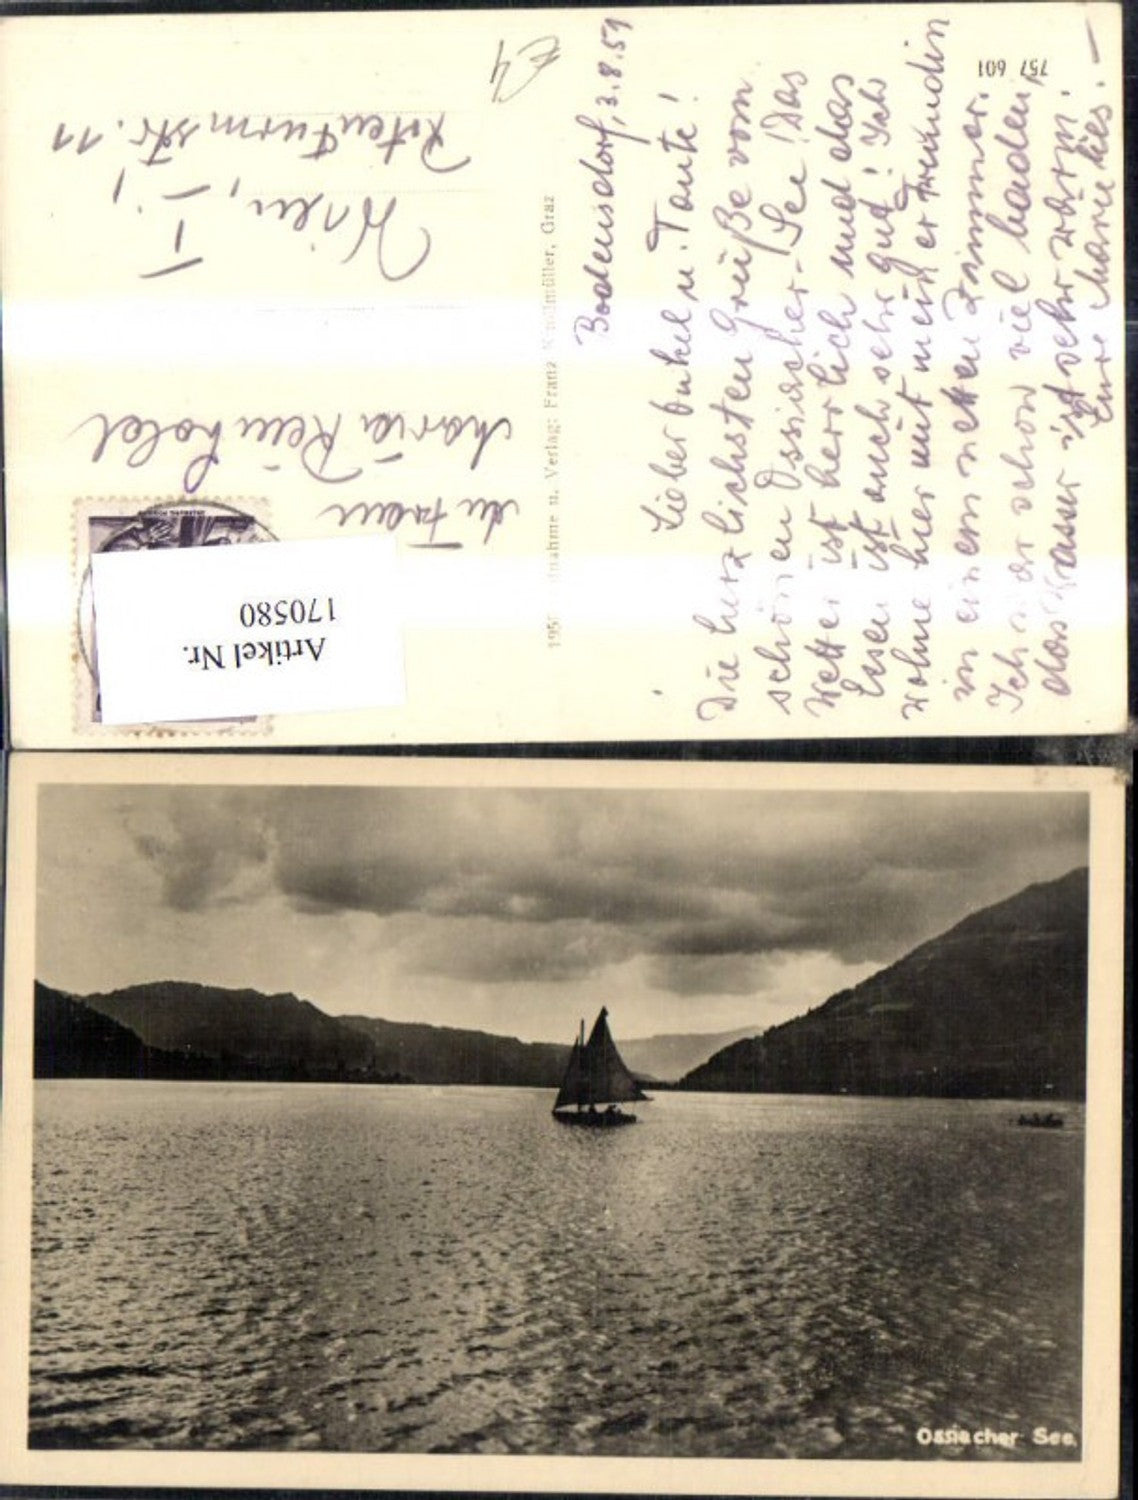 Bodensdorf, 3.8.59
Lieber Onkel u. Tante!
Die herzlichsten Grüße vom
schönen Ossiacher-See! Das
Wetter ist herrlich und das
Essen ist auch sehr gut! Ich
wohne hier mit meiner Freundin
in einem netten Zimmer.
Ich war schon viel baden,
das Wasser ist sehr warm.
Eure Marie Lies.-
757 601
Aufnahme u. Verlag: Franz Knollmüller, Graz
£4
An Frau
Maria Reinhold
Wien, I.!
Rotenturmstr. 11
Artikel Nr.
170580
Ossiacher See.